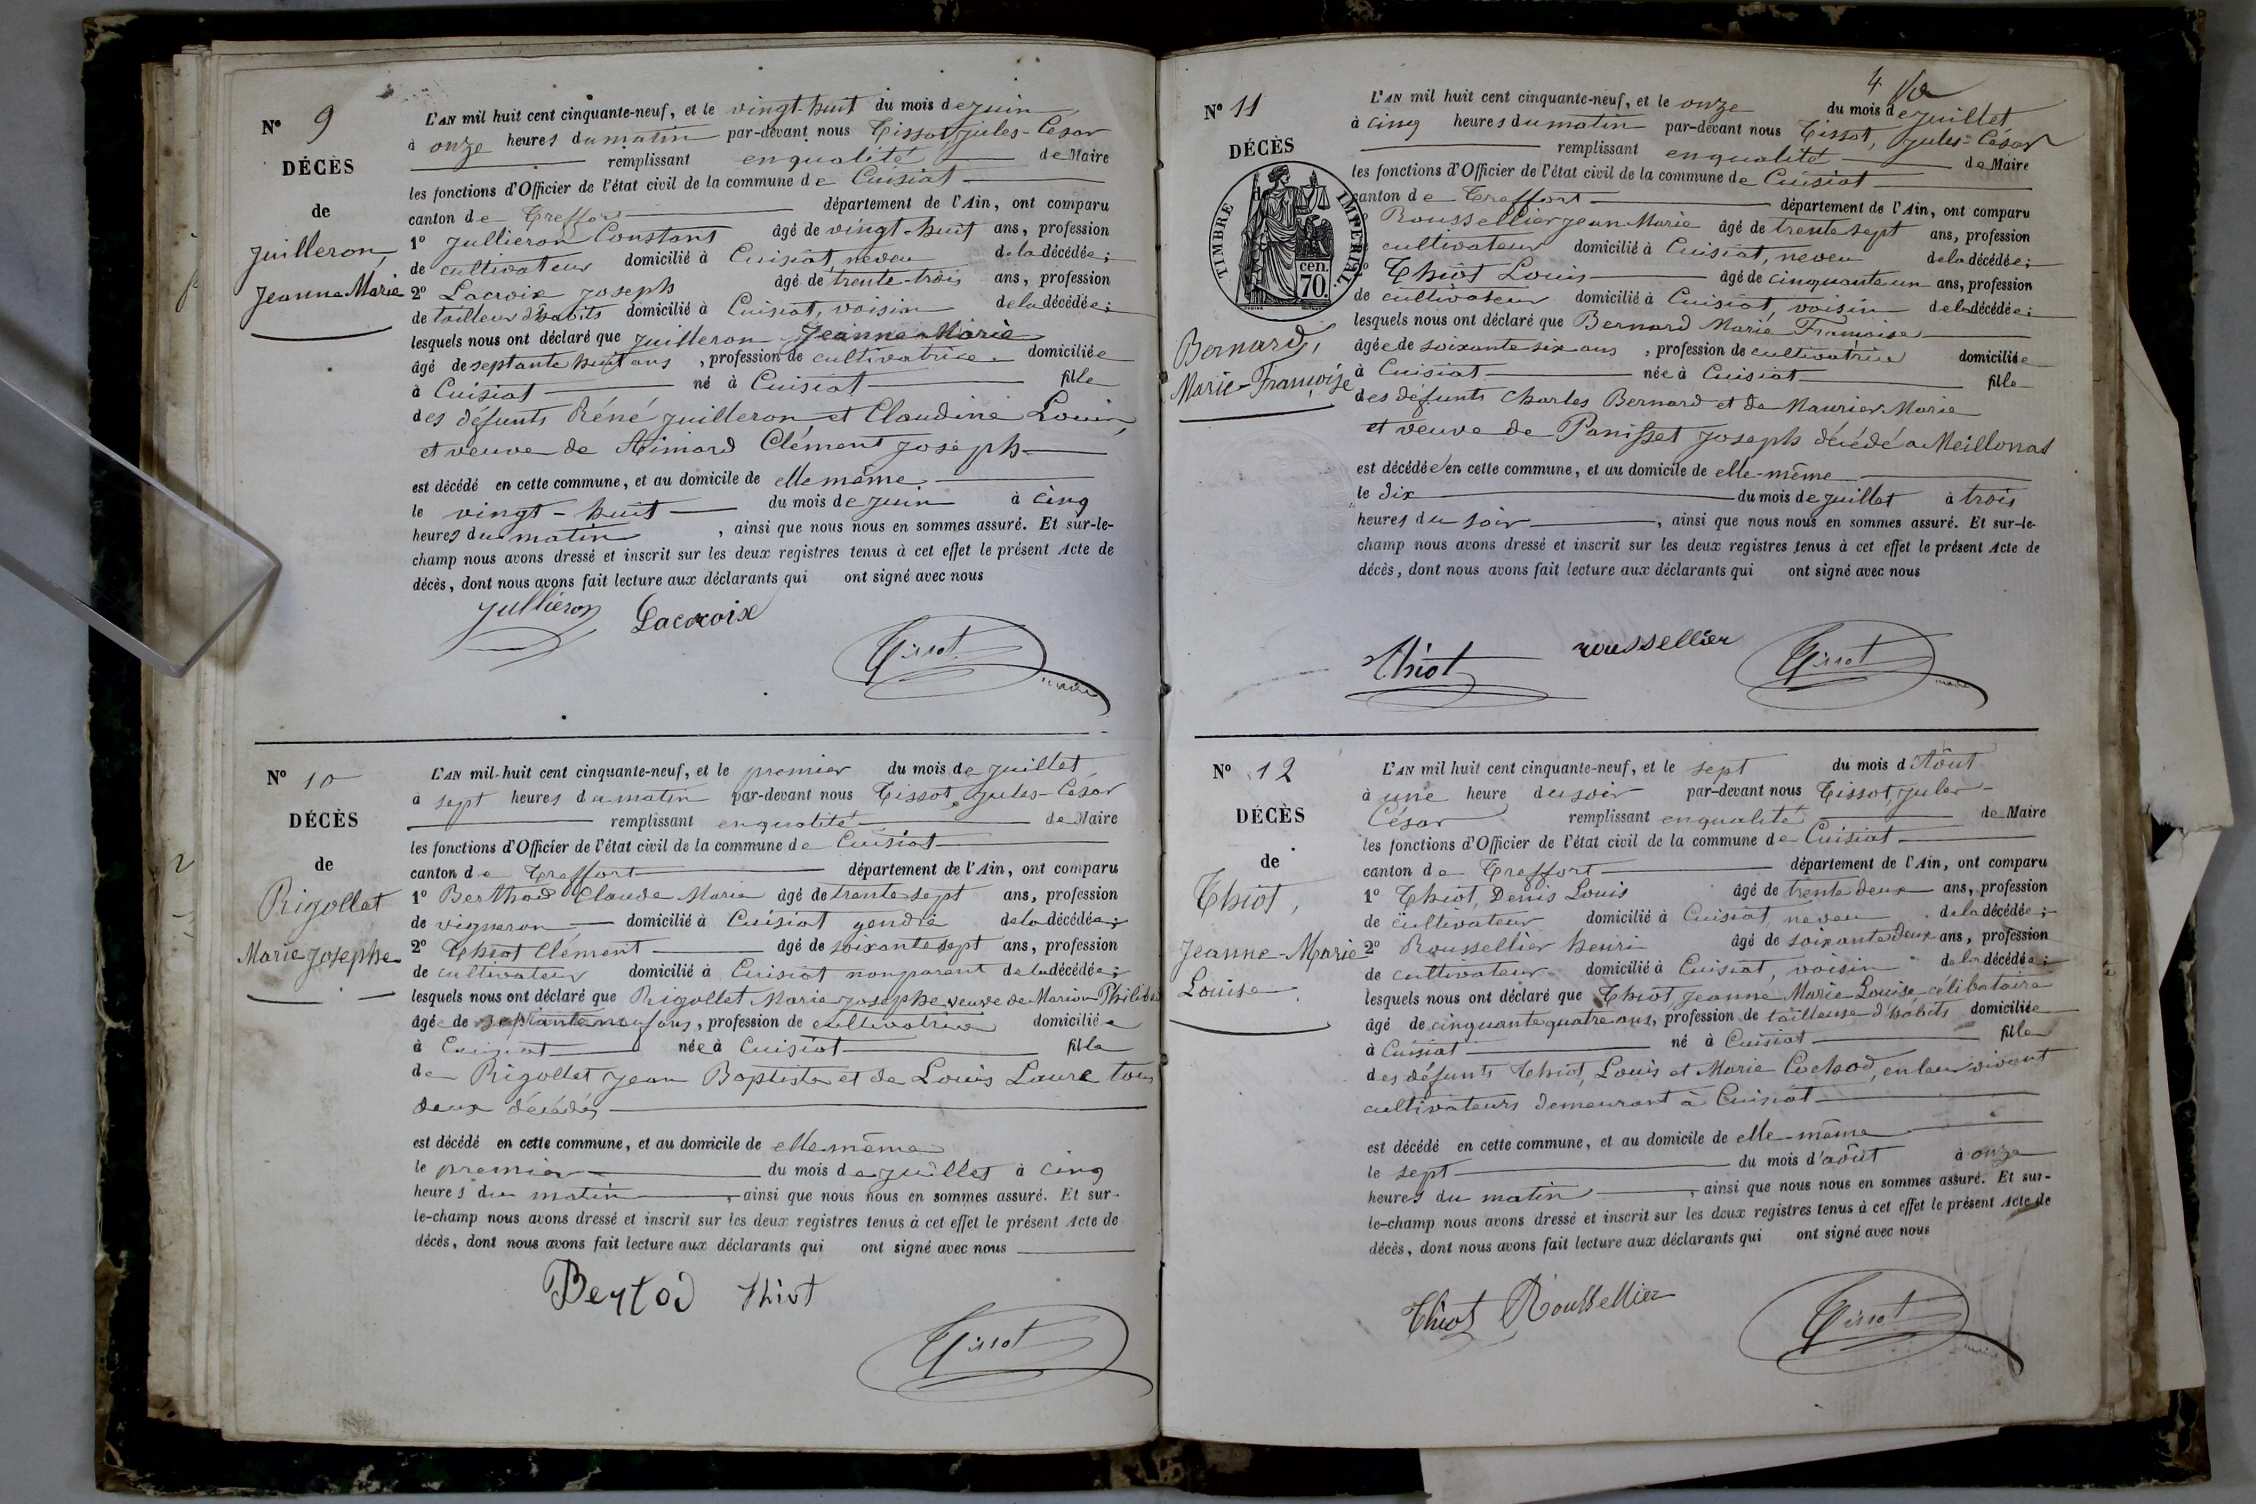 N° 9
DÉCÈS
de
Juilleron,
Jeanne Marie
L'AN mil huit cent cinquante-neuf, et le vingt-huit du mois de juin
à onze heures du matin par-devant nous Tissot, Jules-César
remplissant en qualité de Maire
les fonctions d'Officier de l'état civil de la commune de Cuisiat
canton de Treffort département de l'Ain, ont comparu
1° Jullieron Constant âgé de vingt-huit ans, profession
de cultivateur domicilié à Cuisiat, neveu de la décédée;
2° Lacroix Joseph âgé de trente-trois ans, profession
de tailleur d'habits domicilié à Cuisiat, voisin de la décédée;
lesquels nous ont déclaré que Juilleron Jeanne Marie
âgé de septante huit ans, profession de cultivatrice domiciliée
à Cuisiat né à Cuisiat fille
des défunts Réné Juilleron et Claudine Louis,
et veuve de Aimard Clément Joseph
est décédé en cette commune, et au domicile de elle même
le vingt-huit du mois de juin à cinq
heures du matin, ainsi que nous nous en sommes assuré. Et sur-le-
champ nous avons dressé et inscrit sur les deux registres tenus à cet effet le présent Acte de
décès, dont nous avons fait lecture aux déclarants qui ont signé avec nous
Jullieron Lacroix
Tissot
maire
N° 10
DÉCÈS
de
Rigollet
Marie Josephe
L'AN mil-huit cent cinquante-neuf, et le premier du mois de juillet
à sept heures du matin par-devant nous Tissot, Jules-César
remplissant en qualité de Maire
les fonctions d'Officier de l'état civil de la commune de Cuisiat
canton de Treffort département de l'Ain, ont comparu
1° Berthod Claude Marie âgé de trente sept ans, profession
de vigneron domicilié à Cuisiat gendre de la décédée;
2° Thiot Clément âgé de soixante sept ans, profession
de cultivateur domicilié à Cuisiat non parent de la décédée;
lesquels nous ont déclaré que Rigollet Marie Josephe veuve de Marion
âgée de septante neuf ans, profession de cultivatrice domiciliée
à Cuisiat née à Cuisiat fille
de Rigollet Jean Baptiste et de Louis Laure tous
deux décédés
est décédé en cette commune, et au domicile de elle même
le premier du mois de juillet à cinq
heures du matin, ainsi que nous nous en sommes assuré. Et sur-
le-champ nous avons dressé et inscrit sur les deux registres tenus à cet effet le présent Acte de
décès, dont nous avons fait lecture aux déclarants qui ont signé avec nous
Bertod thiot
Tissot
4
N° 11
DÉCÈS
de
TIMBRE IMPERIAL
cen.
70.
Bernard,
Marie-Françoise
L'AN mil huit cent cinquante-neuf, et le onze du mois de juillet
à cinq heures du matin par-devant nous Tissot, Jules-César
remplissant en qualité de Maire
les fonctions d'Officier de l'état civil de la commune de Cuisiat
canton de Treffort département de l'Ain, ont comparu
Roussellier Jean Marie âgé de trente sept ans, profession
cultivateur domicilié à Cuisiat, neveu de la décédée;
Thiot Louis âgé de cinquante un ans, profession
de cultivateur domicilié à Cuisiat, voisin de la décédée;
lesquels nous ont déclaré que Bernard Marie Françoise
âgée de soixante six ans, profession de cultivatrice domiciliée
à Cuisiat née à Cuisiat fille
des défunts Charles Bernard et de Maurier Marie
et veuve de Panisset Joseph décédé à Meillonas
est décédée en cette commune, et au domicile de elle-même
le dix du mois de juillet à trois
heures du soir, ainsi que nous nous en sommes assuré. Et sur-le-
champ nous avons dressé et inscrit sur les deux registres tenus à cet effet le présent Acte de
décès, dont nous avons fait lecture aux déclarants qui ont signé avec nous
Thiot roussellier Tissot
maire
N° 12
DÉCÈS
de
Thiot,
Jeanne-Marie
Louise
L'AN mil huit cent cinquante-neuf, et le sept du mois d'Août
à une heure du soir par-devant nous Tissot, Jules-
César remplissant en qualité de Maire
les fonctions d'Officier de l'état civil de la commune de Cuisiat
canton de Treffort département de l'Ain, ont comparu
1° Thiot, Denis Louis âgé de trente deux ans, profession
de cultivateur domicilié à Cuisiat neveu de la décédée;
2° Roussellier henri âgé de soixante deux ans, profession
de cultivateur domicilié à Cuisiat, voisin de la décédée;
lesquels nous ont déclaré que Thiot, Jeanne Marie Louise célibataire
âgé de cinquante quatre ans, profession de tailleuse d'habits domiciliée
à Cuisiat né à Cuisiat fille
des défunts Thiot, Louis et Marie Cochod, en leur vivant
cultivateurs demeurant à Cuisiat
est décédé en cette commune, et au domicile de elle-même
le sept du mois d'août à onze
heures du matin, ainsi que nous nous en sommes assuré. Et sur-
le-champ nous avons dressé et inscrit sur les deux registres tenus à cet effet le présent Acte de
décès, dont nous avons fait lecture aux déclarants qui ont signé avec nous
Thiot Roussellier
Tissot
maire